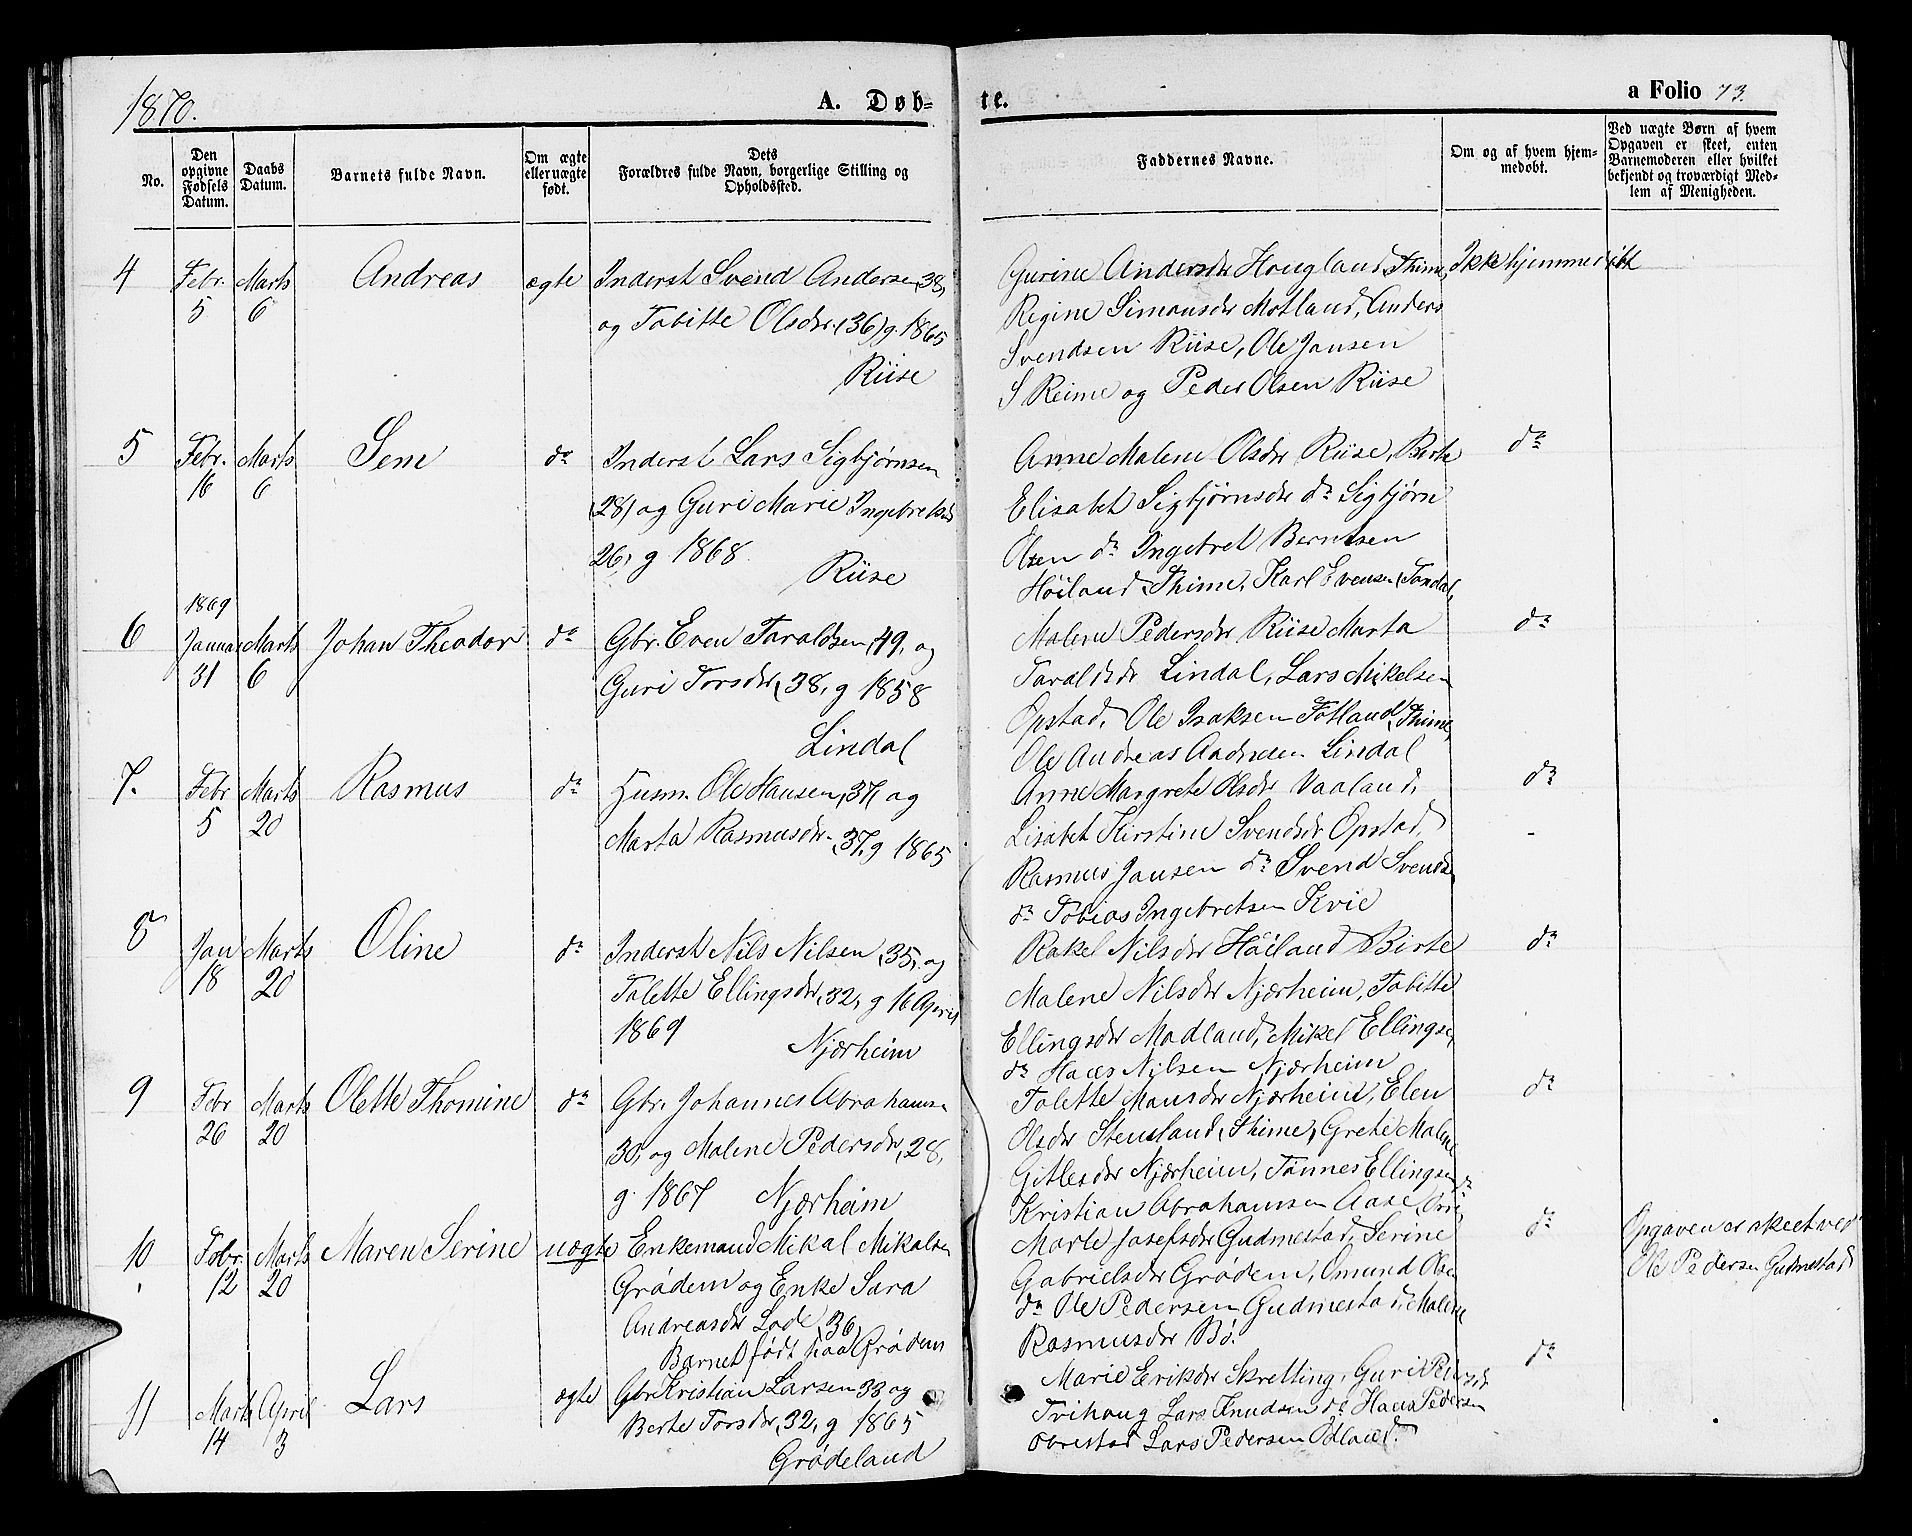 1870.
A. Døb-
te.
a Folio 73.
No.
Den
opgivne
Fødsels
Datum.
Daabs
Datum.
Barnets fulde Navn.
Om ægte
eller uægte
født.
Dets
Forældres fulde Navn, borgerlige Stilling og
Opholdssted.
Faddernes Navne.
Om og af hvem hjem-
medøbt.
Ved uægte Børn af hvem
Opgaven er skeet, enten
Barnemoderen eller hvilket
bekjendt og troværdigt Med-
lem af Menigheden.
4 Febr. 5 Marts 6 Andreas ægte
Inderst Svend Andersen (38)
og Tobitte Olsdr. (36) g. 1865
Riise
Gurine Andersdr Hougland, Thime,
Regine Simonsdr Motland, Anders
Svendsen Riise, Ole Jansen
S Reime og Peder Olsen Riise
Ikke hjemmedøbt
5 Febr. 16 Marts 6 Sem do
Inderst Lars Sigbjørnsen
(28) og Guri Marie Ingebretsd
26, g 1868
Riise
Anne Malene Olsdr Riise, Berte
Elisabet Sigbjørnsdr do Sigbjørn
Olsen do Ingebret Berntsen
Høiland Thime, Karl Evensen
do
6 1869 Januar 31 Marts 6 Johan Theodor do
Gbr. Even Taraldsen, 49, og
Guri Torsdr, 38, g 1858
Lindal
Malene Pedersdr Riise Marta
Taraldsdr Lindal, Lars Mikelsen
Opstad, Ole Isaksen Fotland, Thime,
Ole Andreas Aadnesen Lindal
do
7. Febr 5 Marts 20 Rasmus do
Husm. Ole Hansen, 37, og
Marta Rasmusdr. 37, g 1865
Anne Margrete Olsdr Vaaland,
Lisabet Kirstine Svendsdr Opstad,
Rasmus Jansen do Svend Svends
do Tobias Ingebretsen Kvie
do
8 Jan 18 Marts 20 Oline do
Inderst Nils Nilsen, 35, og
Tolette Ellingsdr, 32, g 16 April
1869
Njærheim
Rakel Nilsdr Høiland Birte
Malene Nilsdr Njærheim, Tobitte
Ellingsdr Madland, Mikel Ellings
do Hans Nilsen Njærheim
do
9 Febr 26 Marts 20 Olette Thomine do
Gbr. Johannes Abrahams.
30, og Malene Pedersdr, 28,
g. 1867 Njærheim
Tolette Monsdr Njærheim, Elen
Olsdr Stensland, Thime, Grete Malene
Gitlesdr Njærheim, Tønnes Ellingsen do
Kristian Abrahamsen Aase, Orre,
do
10 Febr. 12 Marts 20 Maren Serine uægte
Enkemand Mikal Mikalsen
Grødem og Enke Sara
Andreasdr Lode, 36,
Barnet født paa Grødem
Marte Josefsdr Gudmestad, Serine
Gabrielsdr Grødem, Omund Olsen
do Ole Pedersen Gudmestad, Malene
Rasmusdr Bø.
do
Opgaven er skeet ved
Ole Pedersen Gudmestad
11 Marts 14 April 3 Lars ægte
Gbr Kristian Larsen 33 og
Berte Torsdr, 32, g 1865
Grødeland
Marie Eriksdr Skretting, Guri
Tvihoug Lars Knudsen do Hans Pedersen
Obrestad Lars Pedersen Ødland.
do